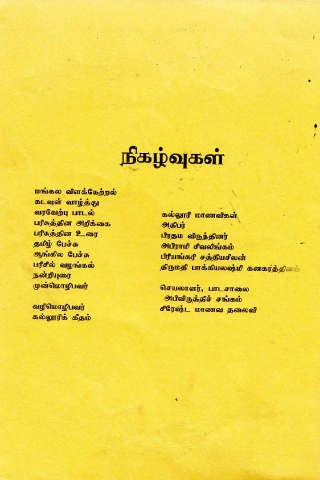 நிகழ்வுகள்
மங்கல விளக்கேற்றல்
கடவுள் வாழ்த்து
வரவேற்பு பாடல்
பரிசுத்தின அறிக்கை
பரிசுத்தின உரை
தமிழ் பேச்சு
ஆங்கில பேச்சு
பரிசில் வழங்கல்
நன்றியுரை
முன்மொழிபவர்
வழிமொழிபவர்
கல்லூரிக் கீதம்
கல்லூரி மாணவிகள்
அதிபர்
பிரதம விருந்தினர்
அபிராமி சிவலிங்கம்
பிரியங்கரி சத்தியசீலன்
திருமதி பாக்கியலஷ்மி கனகரத்தினம்
செயலாளர், பாடசாலை
அபிவிருத்திச் சங்கம்
சிரேஷ்ட மாணவ தலைவி